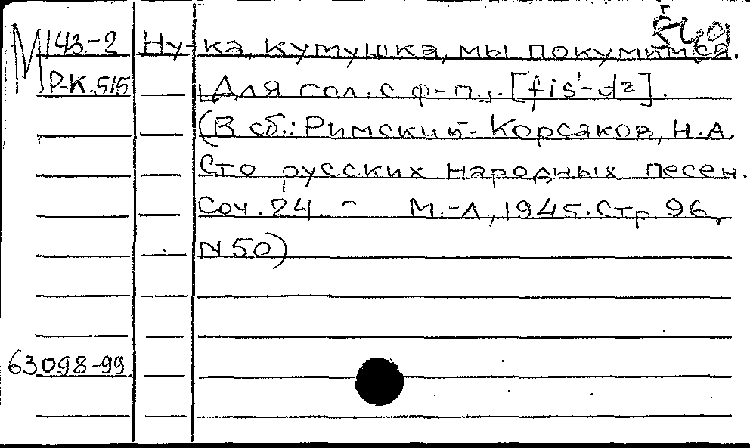 М 143-2 Ну-ка, кумушка, мы покумимся.
Р-К.515 Для гол. с ф-п., [fis'-d²].
(В сб.: Римский-Корсаков, Н.А.
Сто русских народных песен.
Соч. 24 - М.-Л, 1945. Стр 96,
N 50)
63098-99